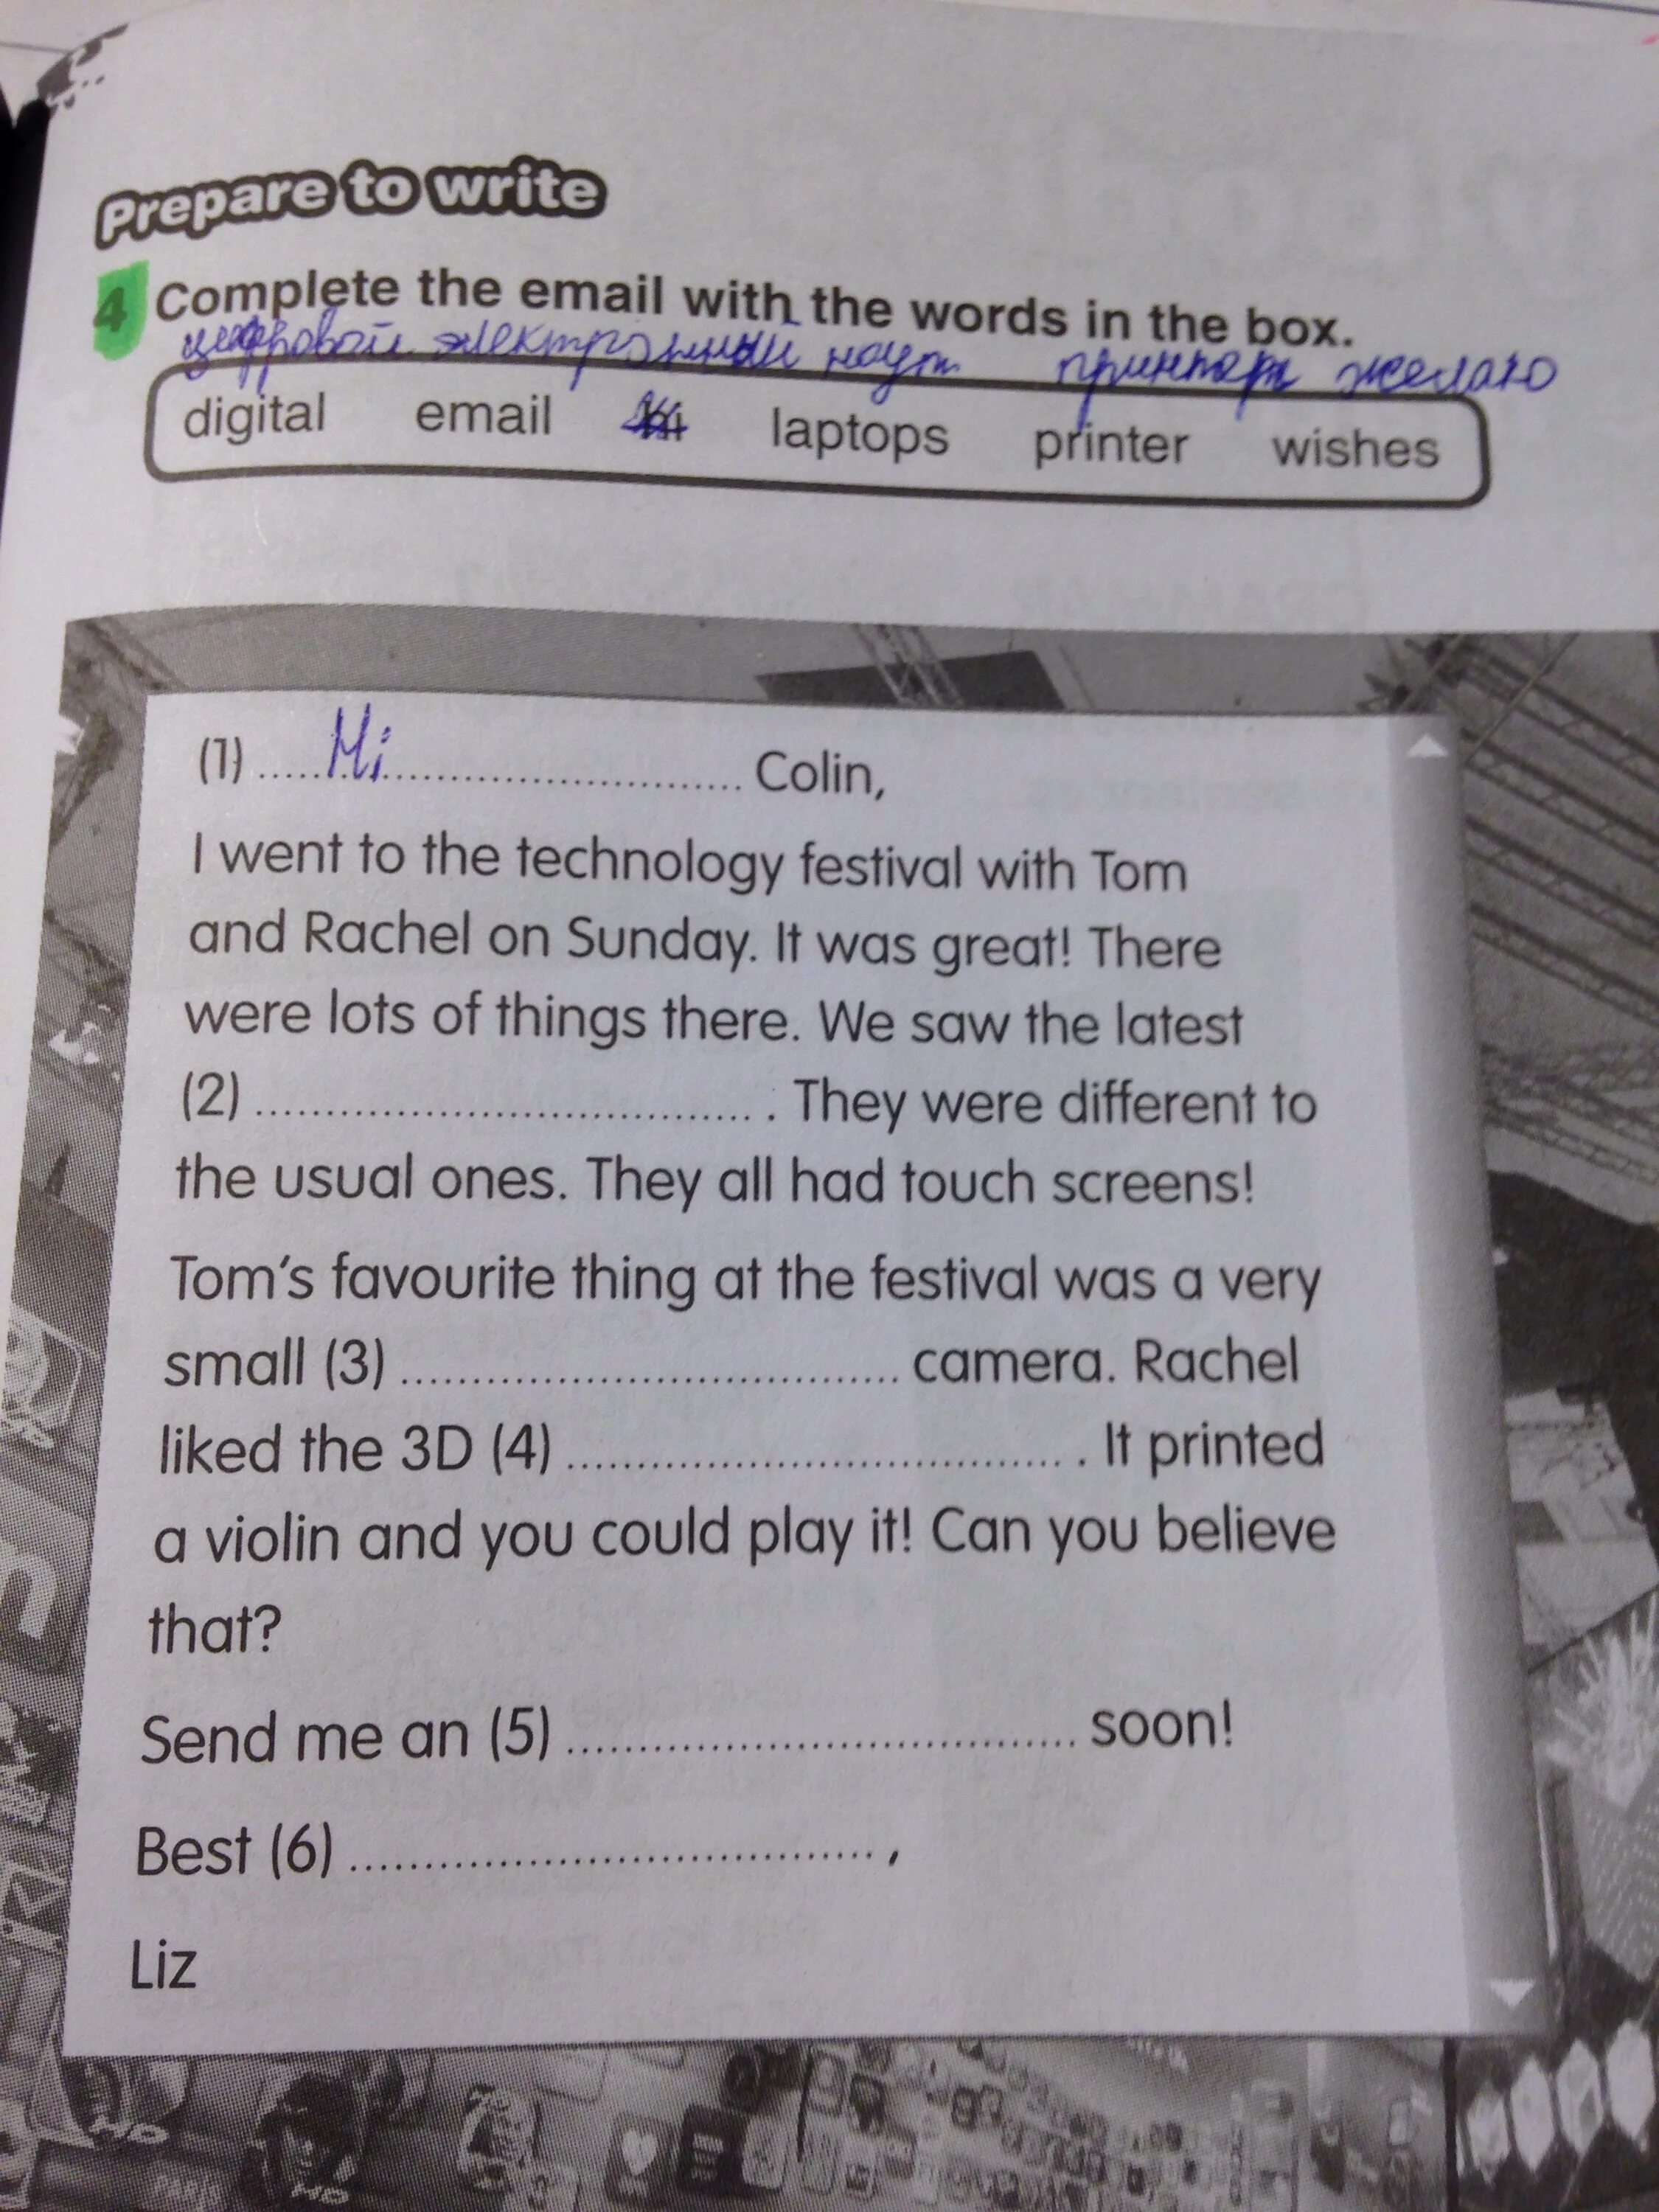 Prepare to write
4 Complete the email with the words in the box.
цифровой электронный ноут принтер желаю
digital email hi laptops printer wishes
(1) .....Hi.................................. Colin,
I went to the technology festival with Tom
and Rachel on Sunday. It was great! There
were lots of things there. We saw the latest
(2) ..................................... . They were different to
the usual ones. They all had touch screens!
Tom's favourite thing at the festival was a very
small (3) ..................................... camera. Rachel
liked the 3D (4) ..................................... . It printed
a violin and you could play it! Can you believe
that?
Send me an (5) ..................................... soon!
Best (6) ..................................... ,
Liz
HD
PARIS
HD